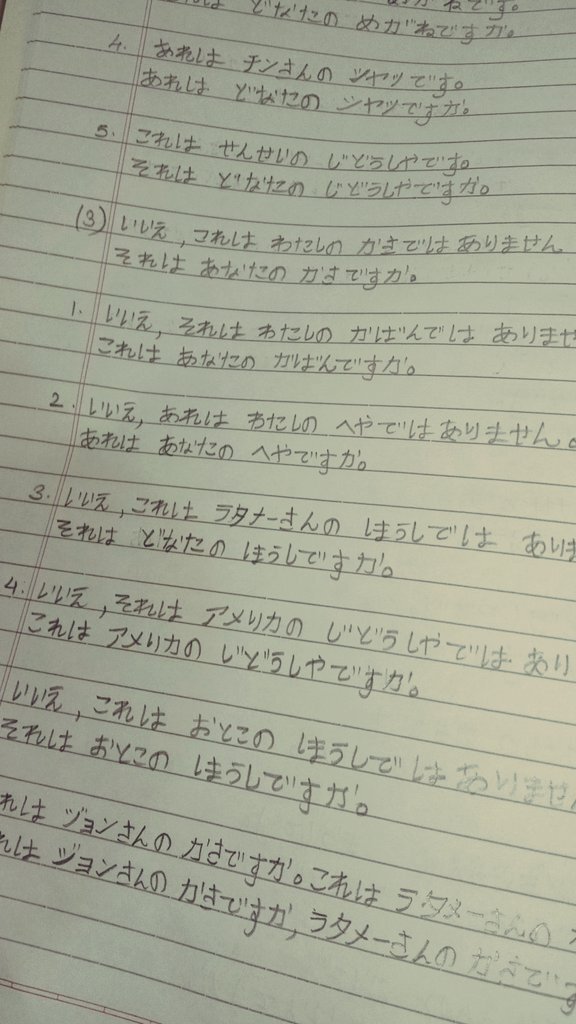 どなたの めがねですか。
4. あれは チンさんの シャツです。
あれは どなたの シャツですか。
5. これは せんせいの じどうしやです。
それは どなたの じどうしやですか。
(3) いいえ, これは わたしの かさではありません
それは あなたの かさですか。
1. いいえ, それは わたしの かばんでは ありませ
これは あなたの かばんですか。
2. いいえ, あれは わたしの へやではありません。
あれは あなたの へやですか。
3. いいえ, これは ラタナーさんの ほうしでは あり
それは どなたの ほうしですか。
4. いいえ, それは アメリカの じどうしやでは あり
これは アメリカの じどうしやですか。
いいえ, これは おとこの ほうしでは ありません
それは おとこの ほうしですか。
れは ジョンさんの かさですか。これは ラタメーさんの
れは ジョンさんの かさですか, ラタメーさんの かさです